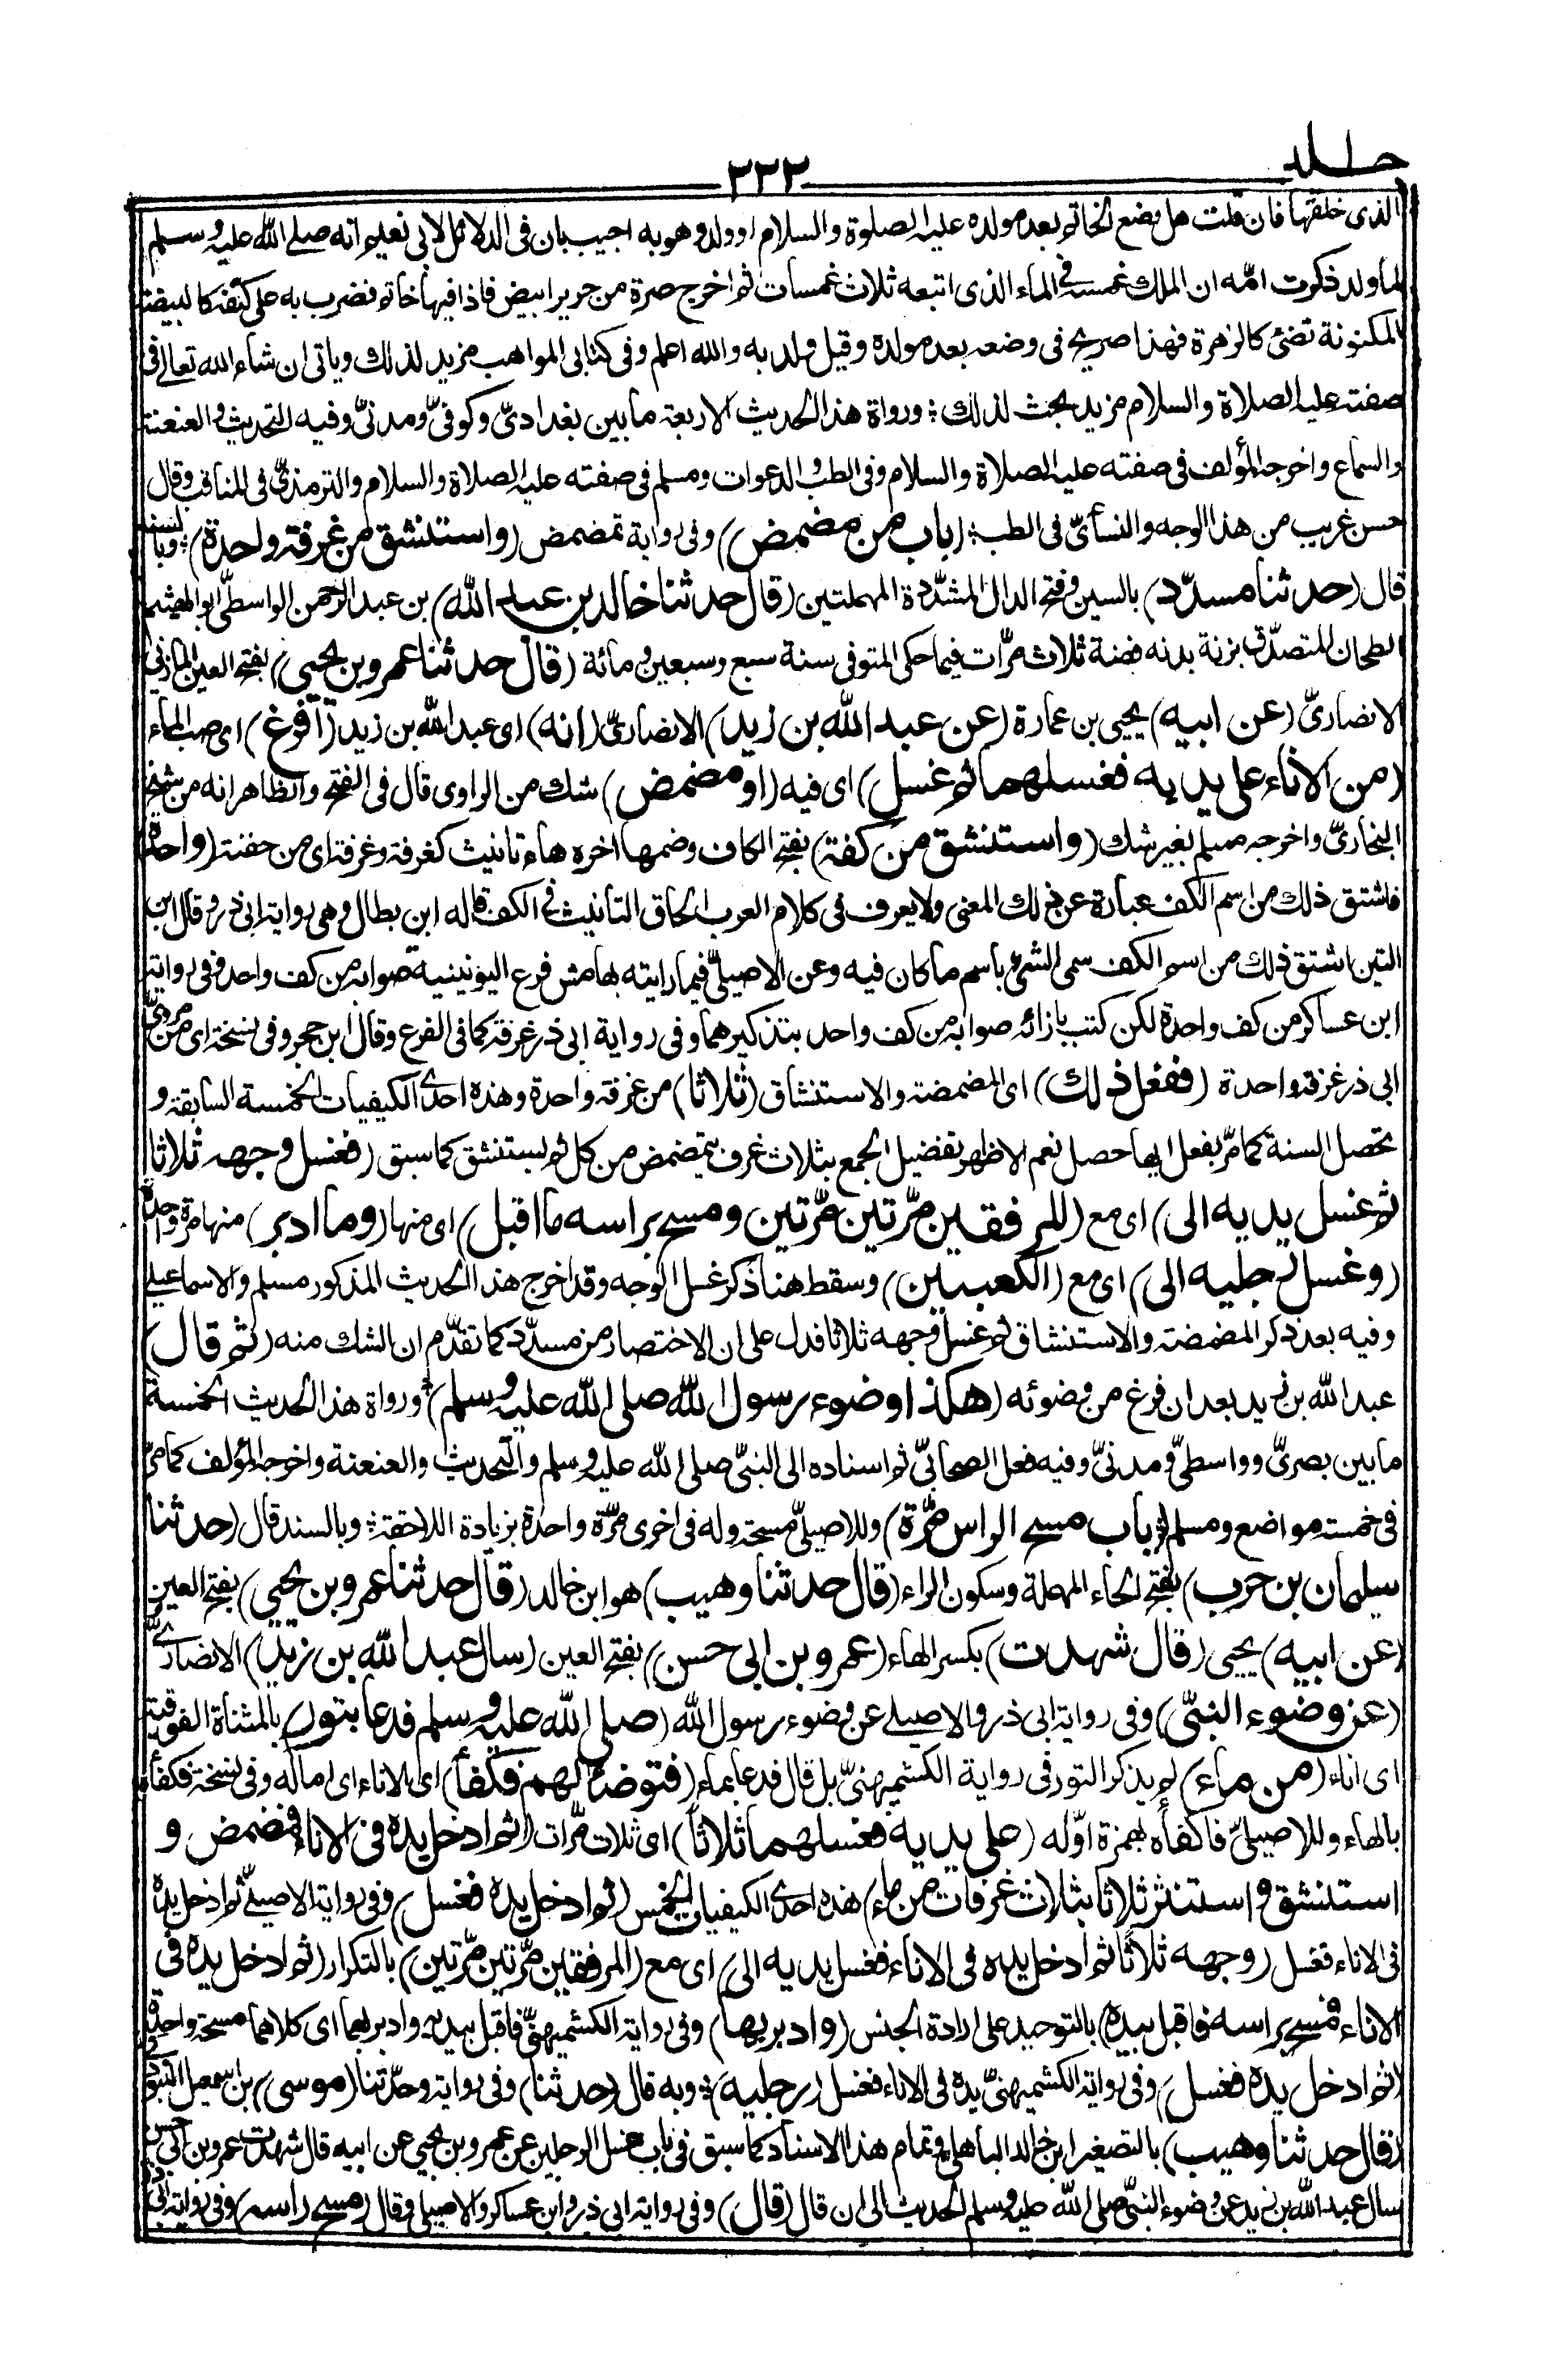 جلد ۳۳۲
الذى خلقها فان قلت هل وضع الخاتم بعد مولده عليه الصلوة والسلام او ولد وهو به اجيب بان فى الدلائل لابى نعيم انه صلى الله عليه وسلم
لما ولد ذكرت امّه ان الملك غمسه فى الماء الذى اتبعه ثلاث غمسات ثم اخرج صرة من حرير ابيض فاذا فيها خاتم فضرب به على كتفه كالبيضة
المكنونة تضئ كالزهرة فهذا صريح فى وضعه بعد مولده وقيل ولد به والله اعلم وفى كتابى المواهب مزيد لذلك وياتى ان شاء الله تعالى فى
صفته عليه الصلاة والسلام مزيد بحث لذلك ؛ ورواة هذا الحديث الاربعة ما بين بغدادىّ وكوفىّ ومدنىّ وفيه التحديث والعنعنة
والسماع واخرجه المؤلف فى صفته عليه الصلاة والسلام وفى الطب والدعوات ومسلم فى صفته عليه الصلاة والسلام والترمذىّ فى المناقب وقال
حسن غريب من هذا الوجه والنسأىّ فى الطب ؛ (باب من مضمض) وفى رواية تمضمض (واستنشق من غرفة واحدة) ؛ وبالسند
قال (حدثنا مسدّد) بالسين وفتح الدال المشدّدة المهملتين (قال حدثنا خالد بن عبد الله) بن عبد الرحمن الواسطىّ ابو الهيثم
الطحان للتصدّق بزنة بدنه فضة ثلاث مرّات فيما حكى المتوفى سنة سبع وسبعين ومائة (قال حدثنا عمرو بن يحيى) بفتح العين المازنى
الانصارىّ (عن ابيه) يحيى بن عمارة (عن عبد الله بن زيد) الانصارىّ (انه) اى عبد الله بن زيد (افرغ) اى صب الماء
(من الاناء على يديه فغسلهما ثم غسل) اى فيه (او مضمض) شك من الراوى قال فى الفتح والظاهر انه من شيخ
البخارىّ واخرجه مسلم بغير شك (واستنشق من كفة) بفتح الكاف وضمها اخره هاء تانيث كغرفة وغرفة اى من حفنة (واحدة)
فاشتق ذلك من اسم الكف عبارة عن ذلك المعنى ولا يعرف فى كلام العرب الحاق التانيث فى الكف قاله ابن بطال وهى رواية ابى ذر وقال ابن
التين اشتق ذلك من اسم الكف سمى الشئ باسم ما كان فيه وعن الاصيلىّ فيما رايته بهامش فرع اليونينية صوابه من كف واحد وفى رواية
ابن عساكر من كف واحدة لكن كتب بازائه صوابه من كف واحد بتذكيرهما وفى رواية ابى ذر غرفة كما فى الفرع وقال ابن حجر وفى نسخة اى من مروىّ
ابى ذر غرفة واحدة (ففعل ذلك) اى المضمضة والاستنشاق (ثلاثا) من غرفة واحدة وهذه احدى الكيفيات الخمسة السابقة و
تحصل السنة كما مرّ بفعل ايها حصل نعم الاظهر تفضيل الجمع بثلاث غرف يتمضمض من كل ثم يستنشق كما سبق (فغسل وجهه ثلاثا
ثم غسل يديه الى) اى مع (المرفقين مرّتين مرّتين ومسح براسه ما اقبل) اى منها (وما ادبر) منها مرة واحدة
(وغسل رجليه الى) اى مع (الكعبين) وسقط هنا ذكر غسل الوجه وقد اخرج هذا الحديث المذكور مسلم والاسماعيلى
وفيه بعد ذكر المضمضة والاستنشاق ثم غسل وجهه ثلاثا فدل على ان الاختصار من مسدّد كما تقدّم ان الشك منه (ثم قال)
عبد الله بن زيد بعد ان فرغ من وضوئه (هكذا وضوء رسول الله صلى الله عليه وسلم) ؛ ورواة هذا الحديث الخمسة
ما بين بصرىّ وواسطىّ ومدنىّ وفيه فعل الصحابىّ ثم اسناده الى النبىّ صلى الله عليه وسلم والتحديث والعنعنة واخرجه المؤلف كما مرّ
فى خمسة مواضع ومسلم ؛ (باب مسح الراس مرّة) وللاصيلىّ مسحة وله فى اخرى مرّة واحدة بزيادة اللاحقة ؛ وبالسند قال (حدثنا
سليمان بن حرب) بفتح الحاء المهملة وسكون الراء (قال حدثنا وهيب) هو ابن خالد (قال حدثنا عمرو بن يحيى) بفتح العين
(عن ابيه) يحيى (قال شهدت) بكسر الهاء (عمرو بن ابى حسن) بفتح العين (سال عبد الله بن زيد) الانصارىّ
(عن وضوء النبىّ) وفى رواية ابى ذر والاصيلى عن وضوء رسول الله (صلى الله عليه وسلم فدعا بتور) بالمثناة الفوقية
اى اناء (من ماء) لم يذكر التور فى رواية الكشميهنىّ بل قال فدعا بماء (فتوضأ لهم فكفأ) اى الاناء اى اماله وفى نسخة فكفأه
بالهاء وللاصيلىّ فاكفأه بهمزة اوّله (على يديه فغسلهما ثلاثا) اى ثلاث مرّات (ثم ادخل يده فى الاناء فمضمض و
استنشق واستنثر ثلاثا بثلاث غرفات من ماء) هذه احدى الكيفيات الخمس (ثم ادخل يده فغسل) وفى رواية الاصيلىّ ثم ادخل يده
فى الاناء فغسل (وجهه ثلاثا ثم ادخل يده فى الاناء فغسل يديه الى) اى مع (المرفقين مرّتين مرّتين) بالتكرار (ثم ادخل يده فى
الاناء فمسح براسه فاقبل بيده) بالتوحيد على ارادة الجنس (وادبر بها) وفى رواية الكشميهنىّ فاقبل بيديه وادبر بهما اى كلاهما مسحة واحدة
(ثم ادخل يده فغسل) وفى رواية الكشميهنىّ يده فى الاناء فغسل (رجليه) ؛ وبه قال (حدثنا) وفى رواية وحدّثنا (موسى) بن اسمعيل التبوذكى
(قال حدثنا وهيب) بالتصغير ابن خالد الباهلى وتمام هذا الاسناد كما سبق فى باب غسل الرجلين عن عمرو بن يحيى عن ابيه قال شهدت عمرو بن ابى حسن
سال عبد الله بن زيد عن وضوء النبىّ صلى الله عليه وسلم الحديث الى ان قال (قال) وفى رواية ابى ذر وابن عساكر والاصيلى وقال (مسح راسه) وفى رواية ابى ذر